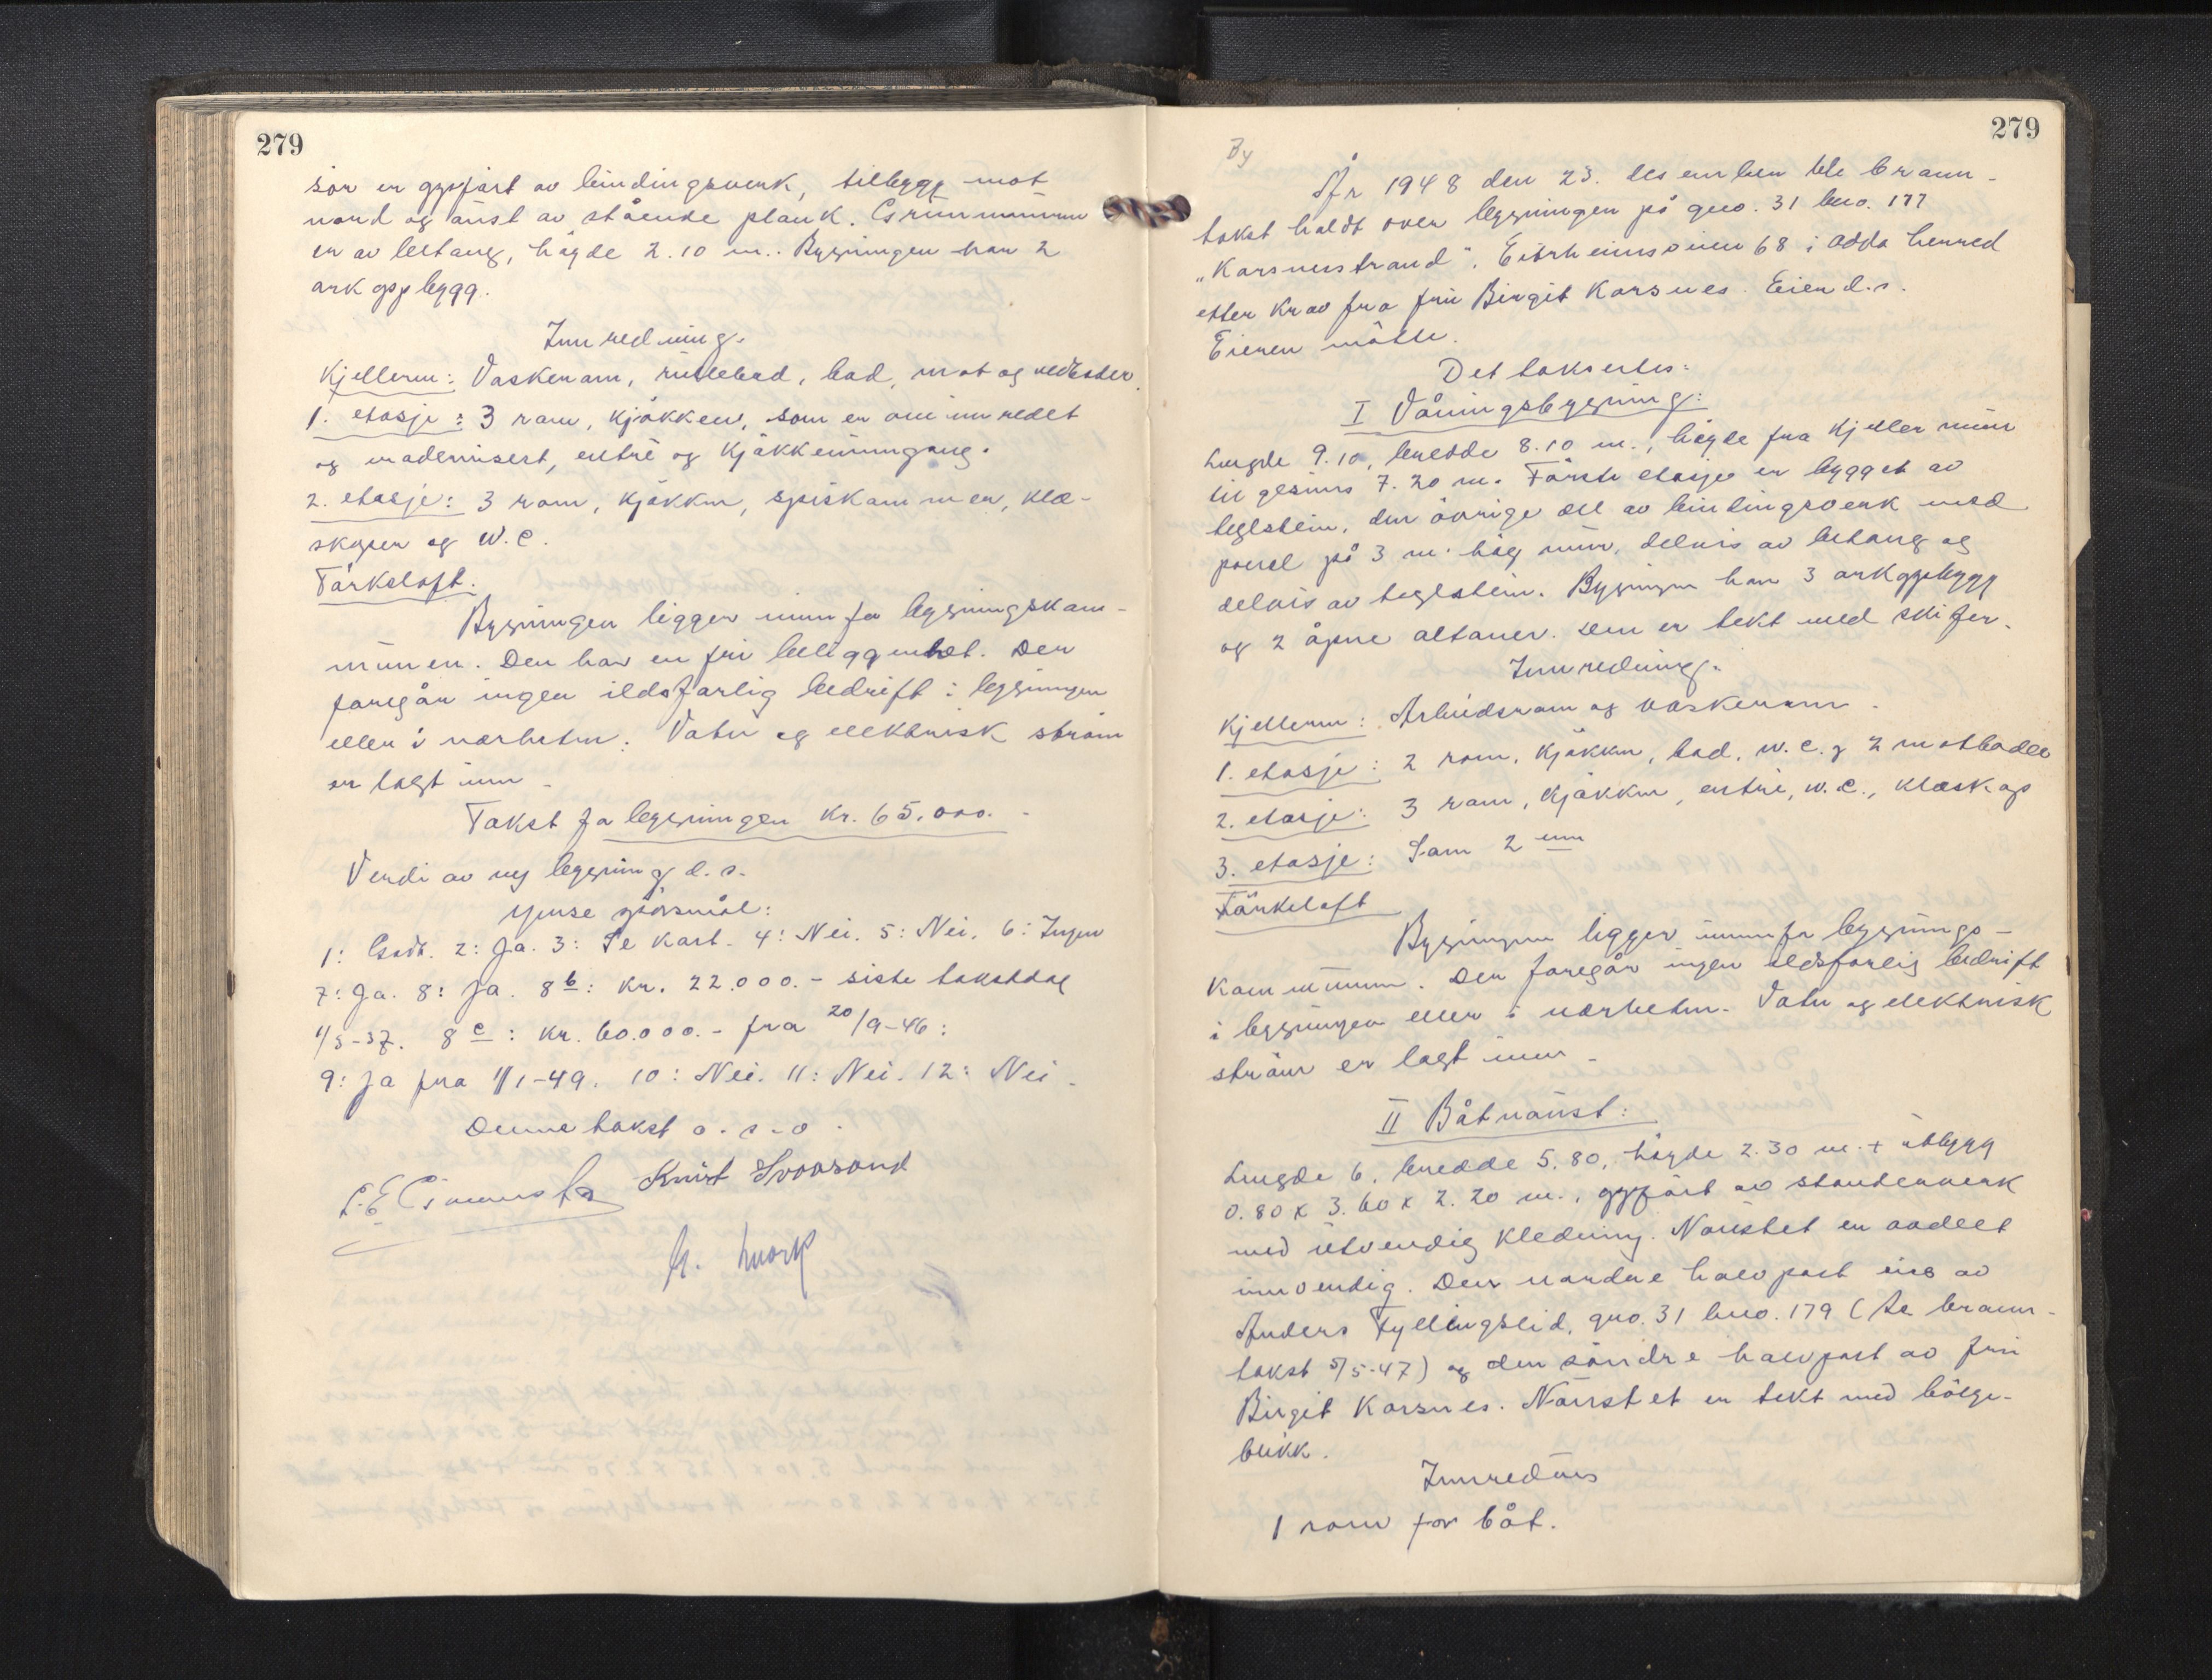 279
sör er oppfört av bindingsverk, tilbygg mot
nord og aust av stående plank. Grunnmuren
er av betong, högde 2.10 m.. Bygningen har 2
ark oppbygg.
Innredning.
Kjelleren: Vaskerom, rullebod, bad, mat og vedboder.
1. etasje: 3 rom, kjökken, som er ominnredet
og modernisert, entré og kjökkeninngang.
2. etasje: 3 rom, kjökken, spiskammer, kle-
skaper og W.C.
Törkeloft.
Bygningen ligger innen for bygningskom-
munen. Den har en fri beliggenhet. Der
foregår ingen ildsfarlig bedrift i bygningen
eller i nærheten. Vatn og elektrisk ström
er lagt inn.
Takst for bygningen kr. 65.000.-
Verdi av ny bygning d. s.
Ymse spörsmål:
1: Godt. 2: Ja. 3: Se kart. 4: Nei. 5: Nei. 6: Ingen
7: Ja. 8: Ja. 8b: kr. 22.000.- siste takstdag
1/5-37. 8c: kr. 60.000.- fra 20/9-46:
9: Ja fra 1/1-49. 10: Nei. 11: Nei. 12: Nei.
Denne takst o. s. v.
Knut
279
By
År 1948 den 23. desember ble brann-
takst holdt over bygningen på gno. 31 bno. 177
"Korsnesstrand", Eitrheimsveien 68 i Odda herred
etter krav fra fru Birgit Korsnes. Eier d.s.
Eieren mötte.
Det takseres:
I Våningsbygning:
Lengde 9.10, bredde 8.10 m., högde fra kjellermur
til gesims 7.20 m. Förste etasje er bygget av
teglstein, den övrige del av bindingsverk med
panel på 3 m. hög mur, delvis av betong og
delvis av teglstein. Bygningen har 3 arkoppbygg
og 2 åpne altaner. Den er tekt med skifer.
Innredning.
Kjelleren: Arbeidsrom og vaskerom.
1. etasje: 2 rom, kjökken, bad, W.C. og 2 matboder
2. etasje: 3 rom, kjökken, entré, W.C., kleskap
3. etasje: Som 2 enn
Törkeloft
Bygningen ligger innenfor bygnings-
kommunen. Der foregår ingen ildsfarlig bedrift
i bygningen eller i nærheten. Vatn og elektrisk
ström er lagt inn.
II Båtnaust:
Lengde 6, bredde 5.80, högde 2.30 m. + utbygg
0.80 x 3.60 x 2.20 m., oppfört av stenderverk
med utvendig kledning. Naustet er avdelt
innvendig. Den nordre halvpart eies av
Anders Fyllingslid, gno. 31 bno. 179 (se brann-
takst 5/5-47) og den söndre halvpart av fru
Birgit Korsnes. Naustet er tekt med bölge-
blikk.
Innredning
1 rom for båt.